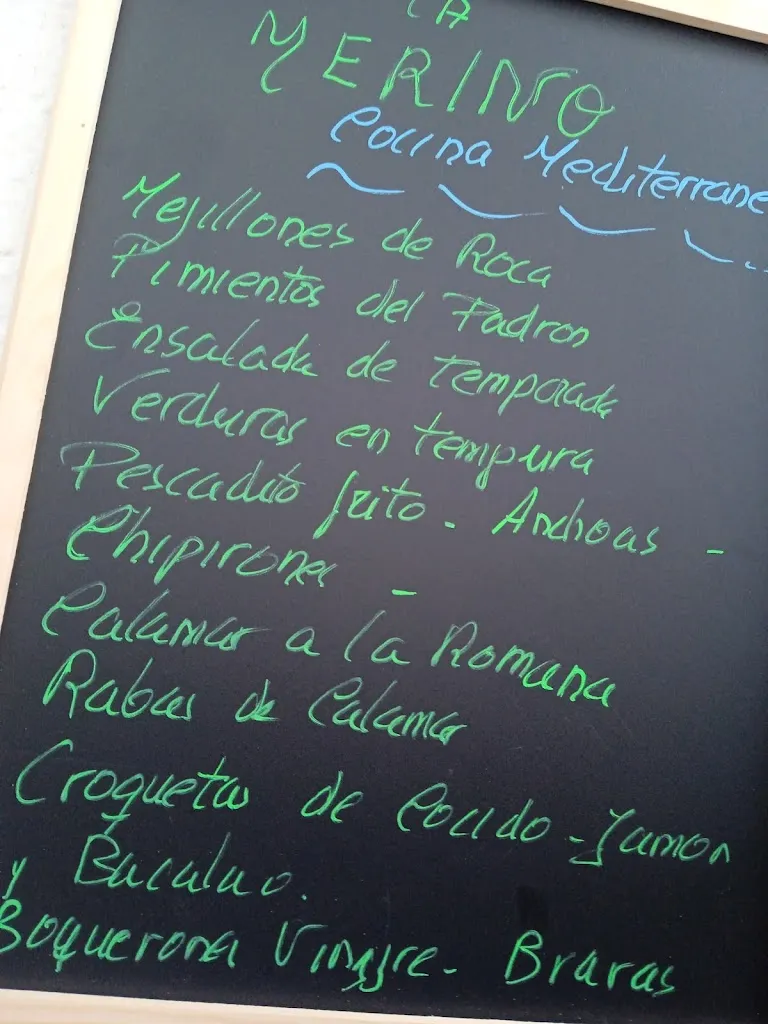 LA
MERINO
Cocina Mediterrane
Mejillones de Roca
Pimientos del Padron
Ensalada de temporada
Verduras en tempura
Pescadito frito - Anchoas -
Chipirones -
Calamar a la Romana
Rabas de Calamar
Croquetas de Cocido - Jamon
y Bacalao.
Boquerona Vinagre - Bravas